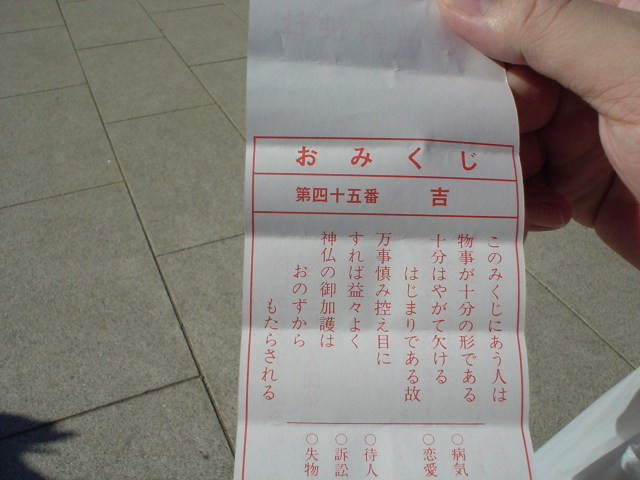 おみくじ
第四十五番 吉
このみくじにあう人は
物事が十分の形である
十分はやがて欠ける
はじまりである故
万事慎み控え目に
すれば益々よく
神仏の御加護は
おのずから
もたらされる
○病気
○恋愛
○待人
○訴訟
○失物